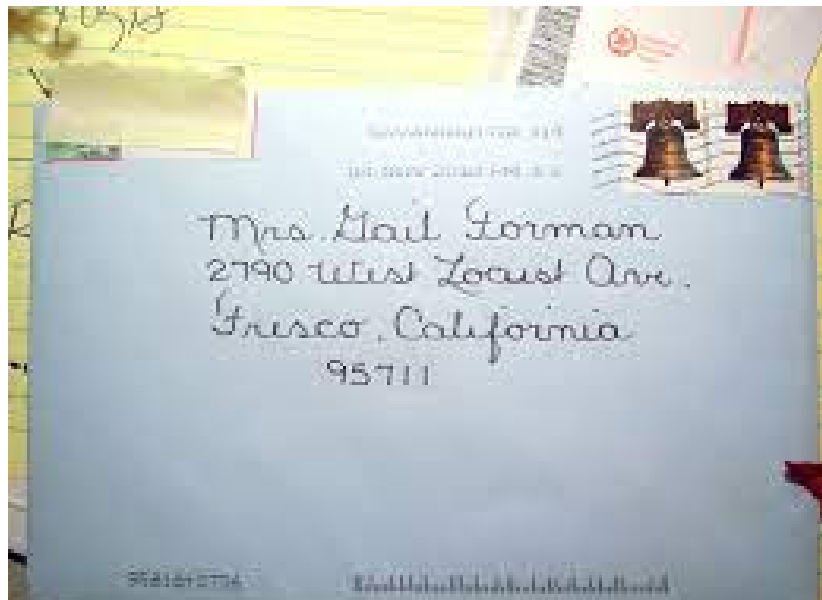 Mrs. Gail Forman
2790 West Locust Ave.
Fresco, California
95711